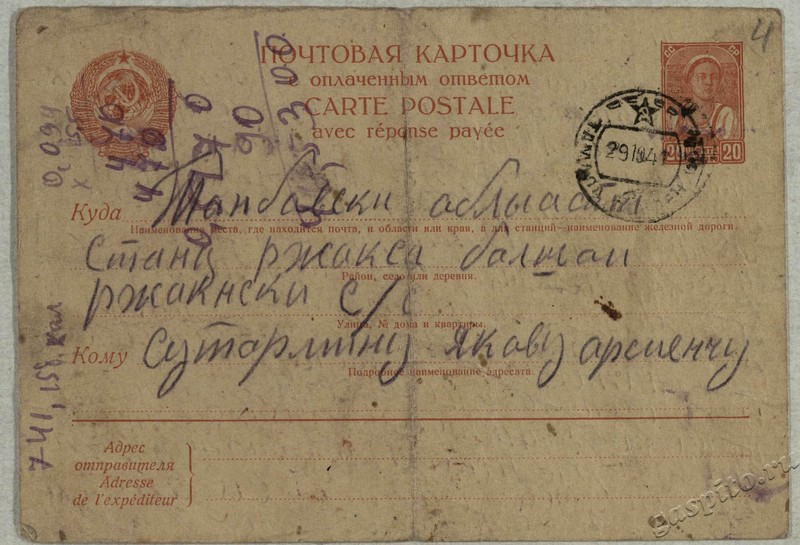 ПОЧТОВАЯ КАРТОЧКА
с оплаченным ответом
CARTE POSTALE
avec réponse payée
4
20 20
29 10 41
Куда Танбавски облыасти
Наименование места, где находится почта, и области или края, а для станций—наименование железной дороги.
Станц ржакса болшои
Район, село или деревня.
ржакнски с/с
Улица, № дома и квартиры.
Кому Сутормину Якову
Подробное наименование адресата.
Адрес
отправителя
Adresse
de l'expéditeur
741,15
gaspito.ru